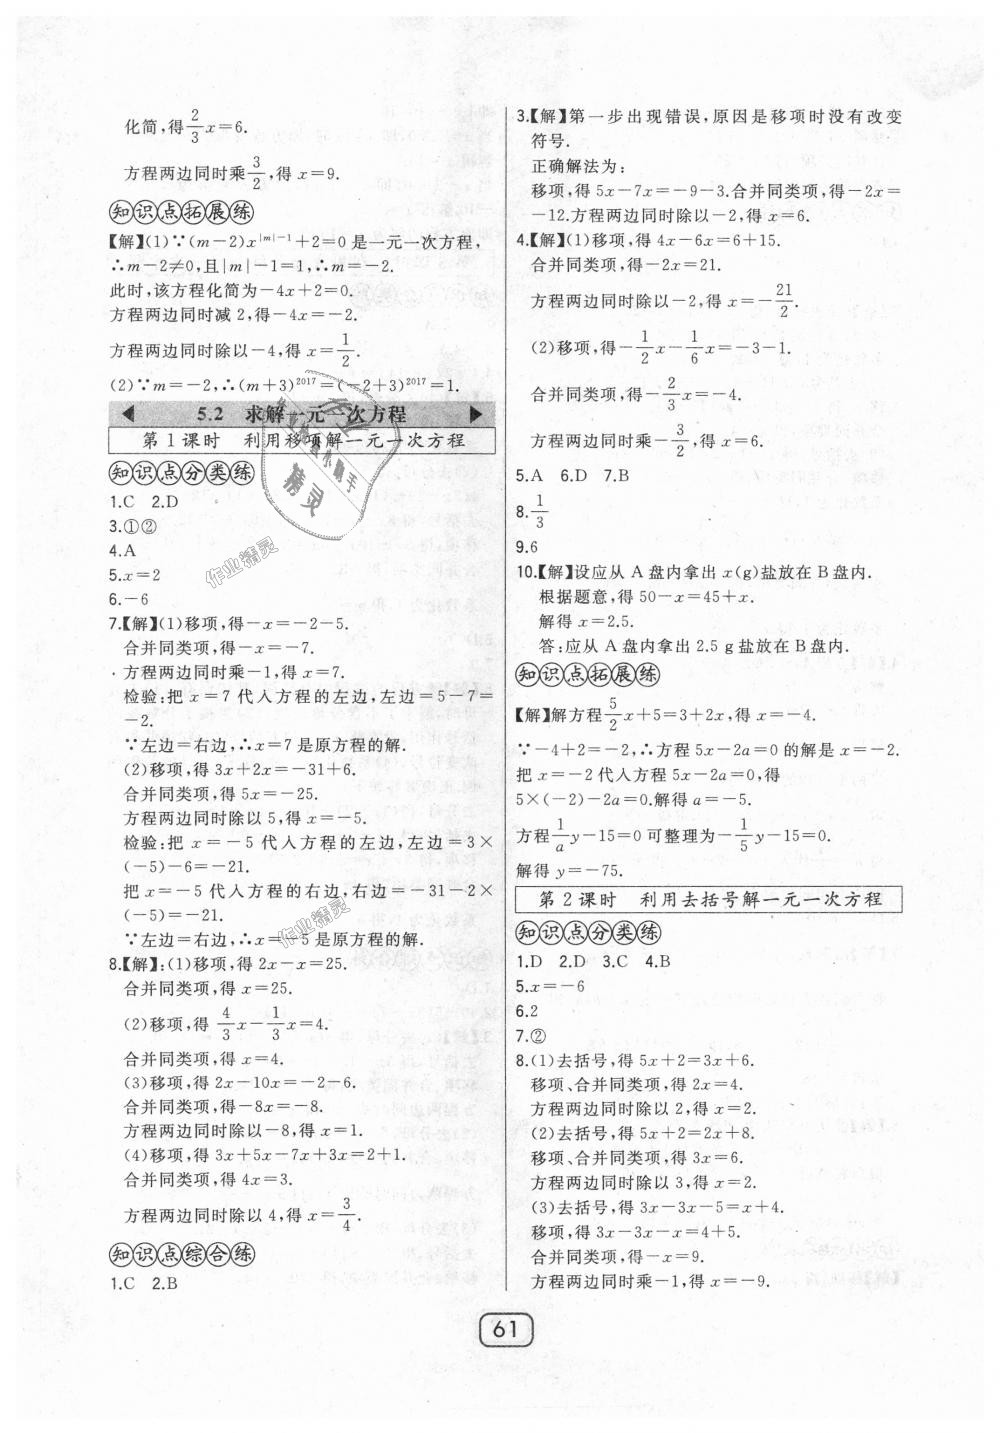 化简,得2/3x=6.
方程两边同时乘3/2,得x=9.
知识点拓展练
【解】(1)∵(m-2)x^|m|-1+2=0是一元一次方程,
∴m-2≠0,且|m|-1=1,∴m=-2.
此时,该方程化简为-4x+2=0.
方程两边同时减2,得-4x=-2.
方程两边同时除以-4,得x=1/2.
(2)∵m=-2,∴(m+3)^2017=(-2+3)^2017=1.
5.2 求解一元一次方程
第1课时 利用移项解一元一次方程
知识点分类练
1.C 2.D
3.①②
4.A
5.x=2
6.-6
7.【解】(1)移项,得-x=-2-5.
合并同类项,得-x=-7.
方程两边同时乘-1,得x=7.
检验:把x=7代入方程的左边,左边=5-7=
-2.
∵左边=右边,∴x=7是原方程的解.
(2)移项,得3x+2x=-31+6.
合并同类项,得5x=-25.
方程两边同时除以5,得x=-5.
检验:把x=-5代入方程的左边,左边=3×
(-5)-6=-21.
把x=-5代入方程的右边,右边=-31-2×
(-5)=-21.
∵左边=右边,∴x=-5是原方程的解.
8.【解】:(1)移项,得2x-x=25.
合并同类项,得x=25.
(2)移项,得4/3x-1/3x=4.
合并同类项,得x=4.
(3)移项,得2x-10x=-2-6.
合并同类项,得-8x=-8.
方程两边同时除以-8,得x=1.
(4)移项,得3x+5x-7x+3x=2+1.
合并同类项,得4x=3.
方程两边同时除以4,得x=3/4.
知识点综合练
1.C 2.B
3.【解】第一步出现错误,原因是移项时没有改变
符号.
正确解法为:
移项,得5x-7x=-9-3.合并同类项,得-2x=
-12.方程两边同时除以-2,得x=6.
4.【解】(1)移项,得4x-6x=6+15.
合并同类项,得-2x=21.
方程两边同时除以-2,得x=-21/2.
(2)移项,得-1/2x-1/6x=-3-1.
合并同类项,得-2/3x=-4.
方程两边同时乘-3/2,得x=6.
5.A 6.D 7.B
8.1/3
9.6
10.【解】设应从A盘内拿出x(g)盐放在B盘内.
根据题意,得50-x=45+x.
解得x=2.5.
答:应从A盘内拿出2.5 g盐放在B盘内.
知识点拓展练
【解】解方程5/2x+5=3+2x,得x=-4.
∵-4+2=-2,∴方程5x-2a=0的解是x=-2.
把x=-2代入方程5x-2a=0,得
5×(-2)-2a=0.解得a=-5.
方程1/ay-15=0可整理为-1/5y-15=0.
解得y=-75.
第2课时 利用去括号解一元一次方程
知识点分类练
1.D 2.D 3.C 4.B
5.x=-6
6.2
7.②
8.(1)去括号,得5x+2=3x+6.
移项、合并同类项,得2x=4.
方程两边同时除以2,得x=2.
(2)去括号,得5x+2=2x+8.
移项、合并同类项,得3x=6.
方程两边同时除以3,得x=2.
(3)去括号,得3x-3x-5=x+4.
移项,得3x-3x-x=4+5.
合并同类项,得-x=9.
方程两边同时乘-1,得x=-9.
61
作业精灵
作业精灵